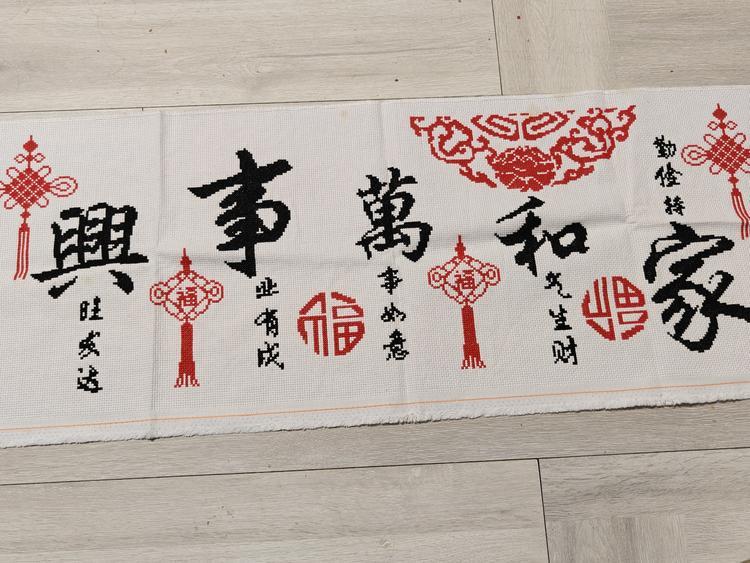 勤俭持家
和气生财
萬事如意
事业有成
興旺发达
福
福
福